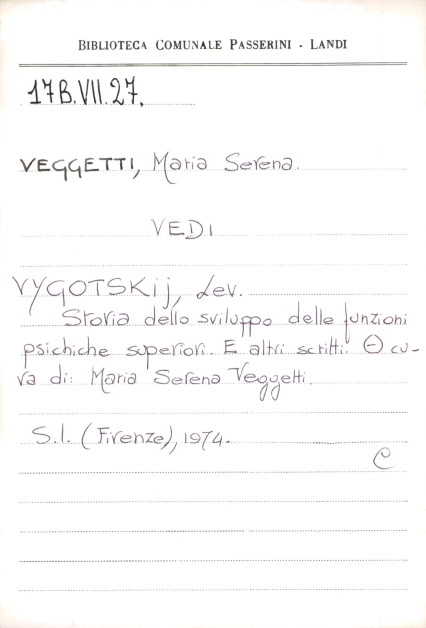 BIBLIOTECA COMUNALE PASSERINI - LANDI
17B.VII.27.
VEGGETTI, Maria Serena.
VEDI
VYGOTSKIj, Lev.
Storia dello sviluppo delle funzioni
psichiche superiori. E altri scritti. A cu-
ra di: Maria Serena Veggetti.
S.l. (Firenze), 1974.
C